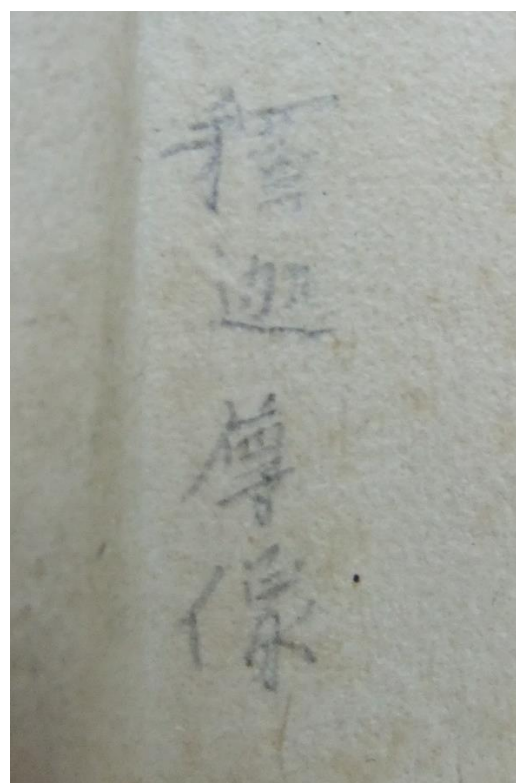 釋迦尊像